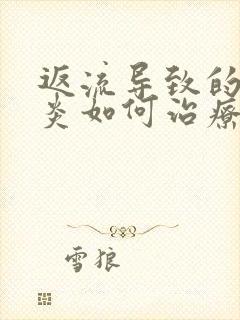 返流导致的
炎如何治療
雪狼